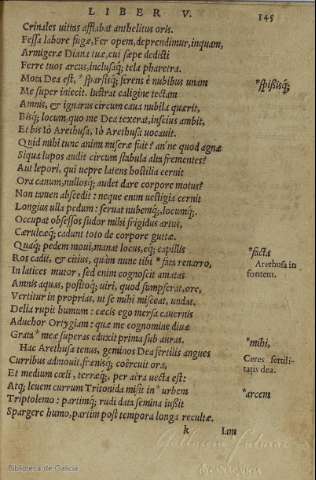 LIBER V. 145
Crinales uittas afflabat anhelitus oris.
Fessa labore fugæ, Fer opem, deprendimur, inquam,
Armigeræ Diana tuæ, cui sæpe dedisti
Ferre tuos arcus, inclusaq; tela pharetra.
Mota Dea est, *sparsisq; ferens è nubibus unam
*spissisq;
Me super iniecit. lustrat caligine tectam
Amnis, & ignarus circum caua nubila quærit,
Bisq; locum, quo me Dea texerat, inscius ambit,
Et bis Iô Arethusa, Iô Arethusa uocauit.
Quid mihi tunc animi miseræ fuit? an'ne quod agnæ
Siqua lupos audit circum stabula alta frementes?
Aut lepori, qui uepre latens hostilia cernit
Ora canum, nullosq; audet dare corpore motus?
Non tamen abscedit: neque enim uestigia cernit
Longius ulla pedum: seruat nubemq;, locumq;.
Occupat obsessos sudor mihi frigidus artus,
Cæruleæq; cadunt toto de corpore guttæ.
Quaq; pedem moui, manat locus, eq; capillis
Ros cadit, & citius, quàm nunc tibi *fata renarro,
*facta
Arethusa in
fontem.
In latices mutor, sed enim cognoscit amatas
Amnis aquas, positoq; uiri, quod sumpserat, ore,
Vertitur in proprias, ut se mihi misceat, undas.
Delia rupit humum: cæcis ego mersa cauernis
Aduehor Ortygiam: quæ me cognomine diuæ
Grata *meæ superas eduxit prima sub auras.
*mihi,
Hac Arethusa tenus, geminos Dea fertilis angues
Ceres fertili-
tatis dea.
Curribus admouit, frænisq; coërcuit ora,
Et medium cœli, terræq;, per aëra uecta est:
Atq; leuem currum Tritonida misit in *urbem
*arcem
Triptolemo: partimq; rudi data semina iussit
Spargere humo, partim post tempora longa recultæ.
k Iam
Biblioteca de Galicia